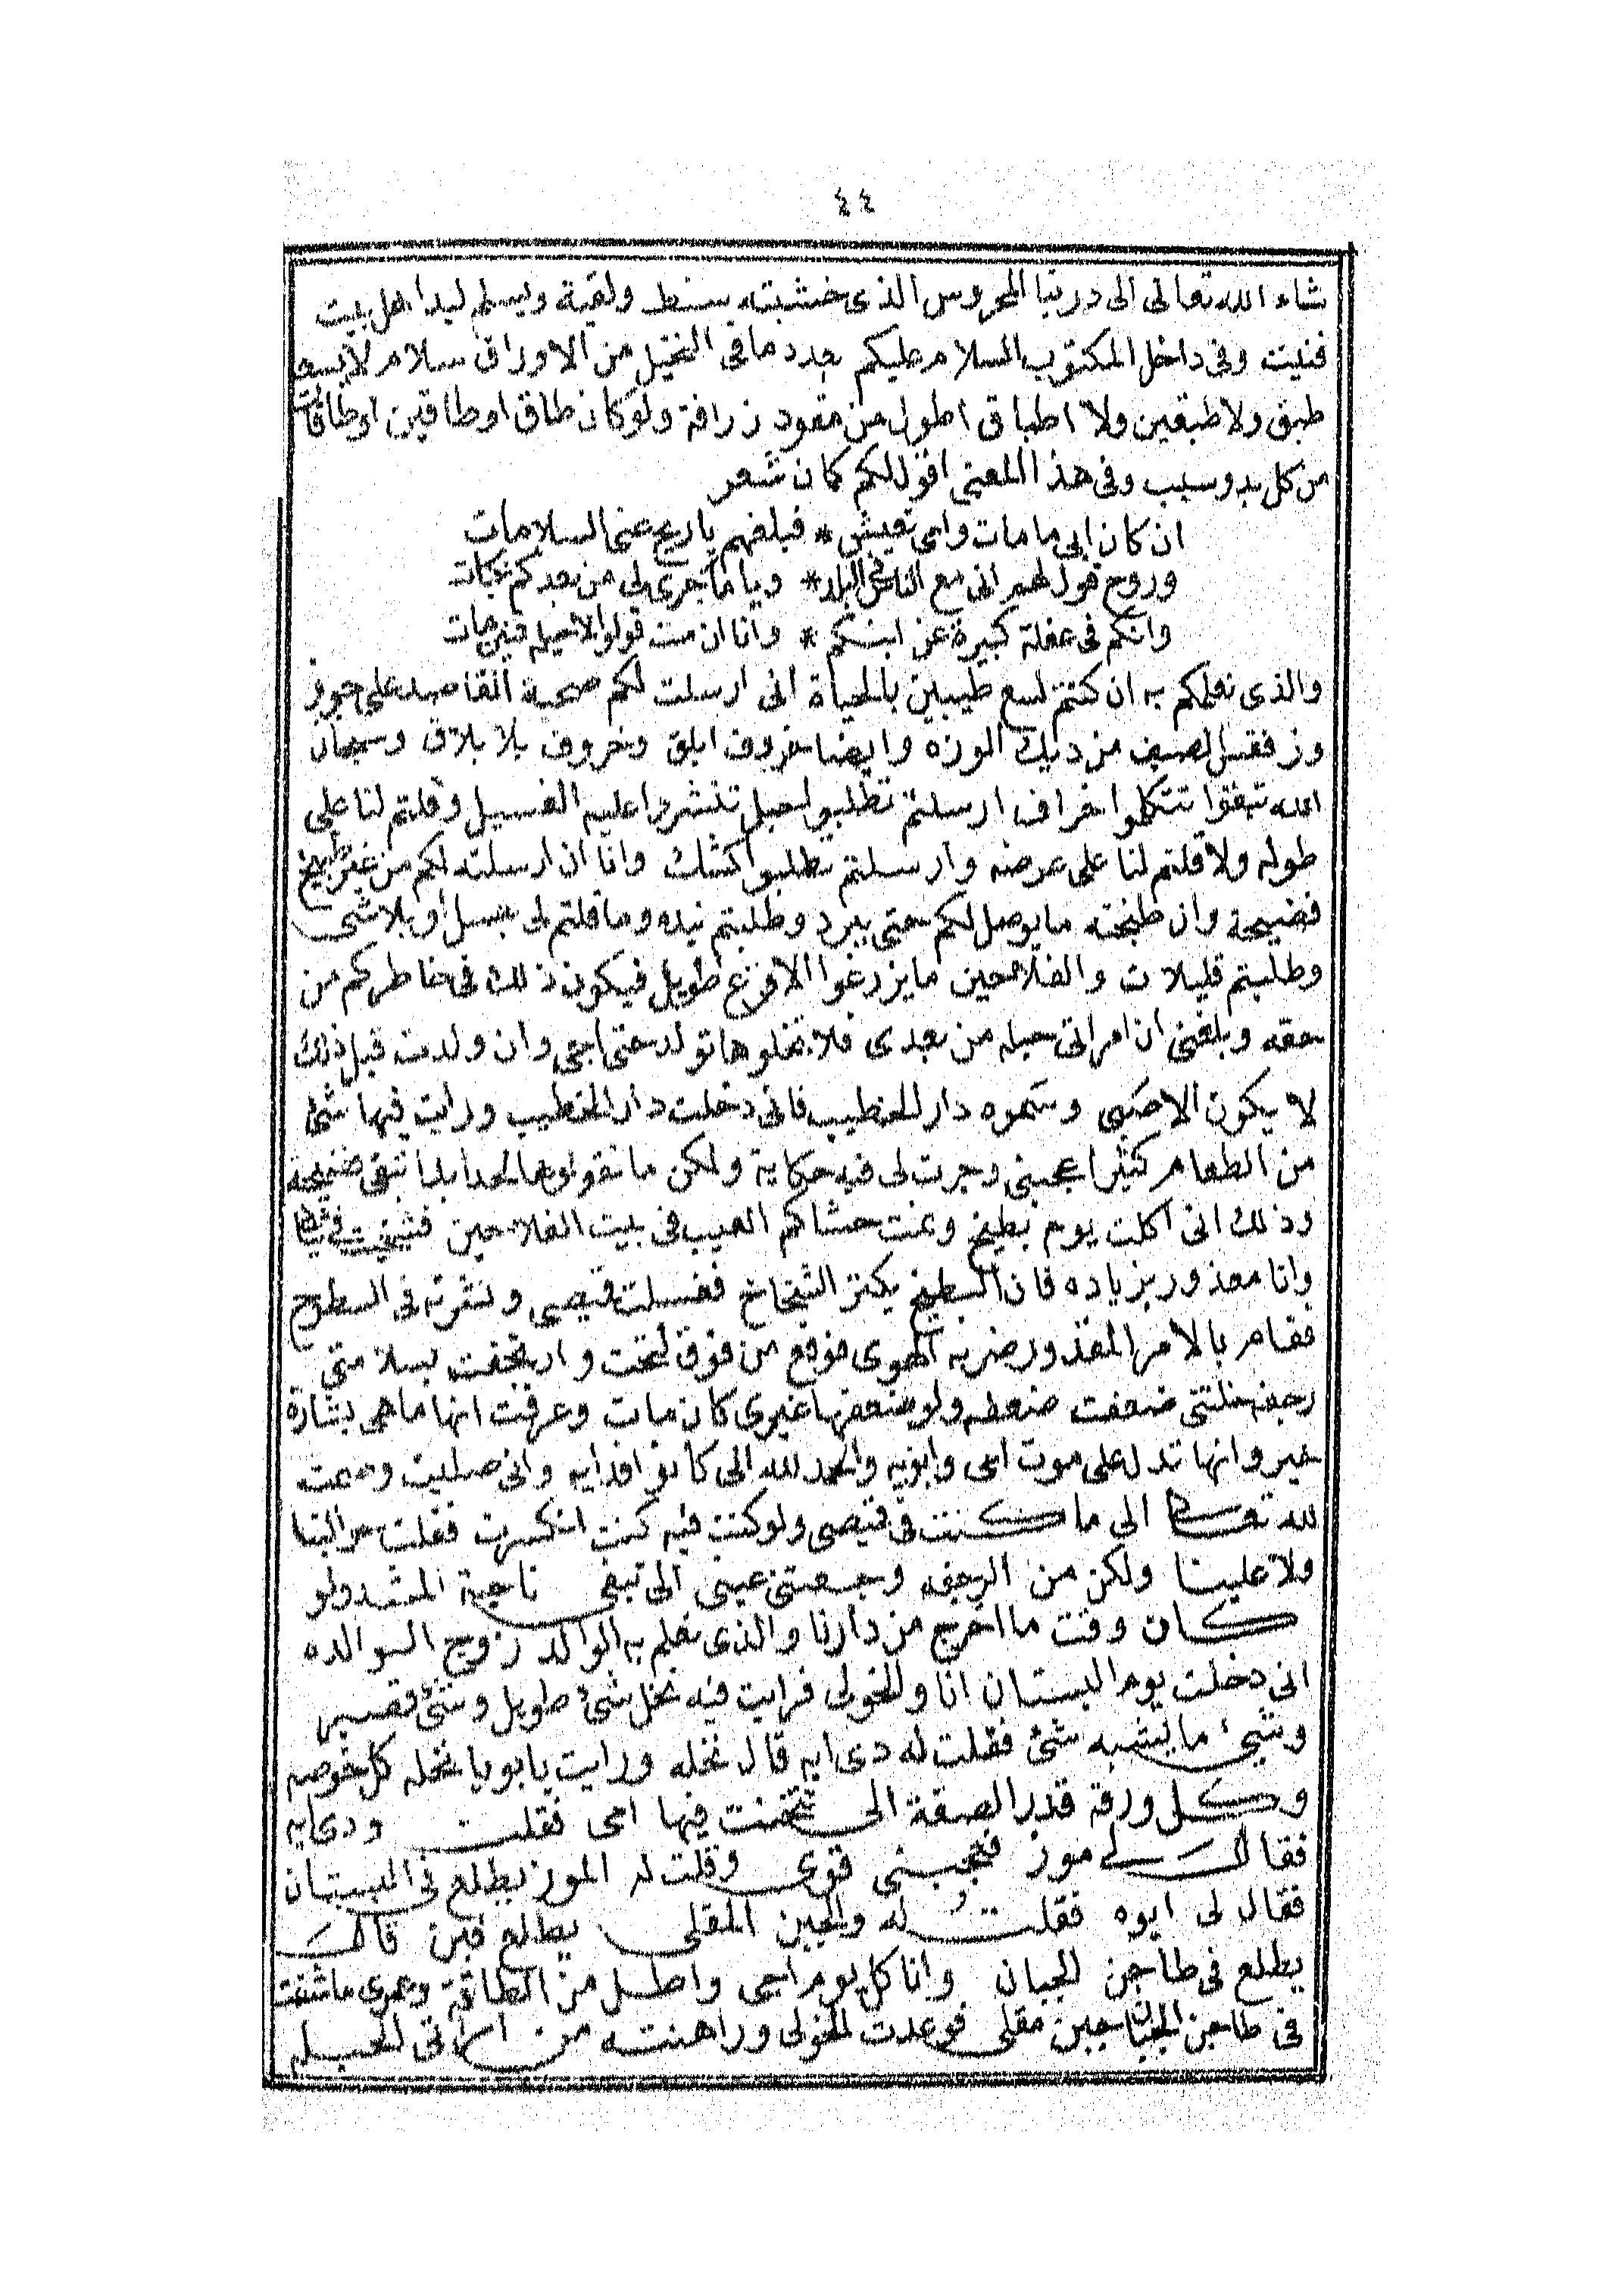 ٤٤
شاء الله تعالى الى دربنا المحروس الذى خشبته سنط ولقية ويسلم ليد اهل بيت
فنيت وفى داخل المكتوب السلام عليكم بعدد ما فى النخيل من الاوراق سلام لا يسعه
طبق ولا طبقين ولا اطباق اطول من مقود زرافة ولو كان طاق او طاقين او طاقات
من كل بد وسبب وفى هذا المعنى اقول لكم كمان شعر
ان كان ابى ما مات وامى تعيش * فبلغهم يا ريح عنى السلامات
وروح قول لهم انى مع الناس فى البلد * ويا ما جرى لى من بعدكم نكات
وانكم فى غفلة كبيرة عن ابنكم * وانا ان مت قولوا لاحيله فين مات
والذى نعلمكم به ان كنتم لسع طيبين بالحياة انى ارسلت لكم صحبة القاصد على جوز
وز فقس الصيف من ديك الوزه وايضا خروف ابلق وخروف بلا بلاق وسبحان
الله تبقوا تتكلموا خراف ارسلتم تطلبوا حبل تنشروا عليه الغسيل وقلتم لنا على
طوله ولا قلتم لنا على عرضه وارسلتم تطلبوا كشك وانا ان ارسلته لكم من غير طبيخ
فضيحة وان طبخته ما يوصل لكم حتى يبرد وطلبتم نيده وما قلتم لى بعسل أو بلاشى
وطلبتم قليلات والفلاحين ما يزرعوا الا قرع طويل فيكون ذلك فى خاطركم من
حقه وبلغنى ان امراتى حبله من بعدى فلا تخلوها تولد حتى اجى وان ولدت قبل ذلك
لا يكون الا صبى وسموه دار الخطيب فانى دخلت دار الخطيب ورايت فيها شئ
من الطعام كثير اعجبنى وجرت لى فيه حكاية ولكن ما تقولوها لحد ابدا تبقى فضيحه
وذلك انى اكلت يوم بطيخ ونمت حشاكم العيب فى بيت الفلاحين فشخيت فى ثيابى
وانا معذور بزياده فان البطيخ يكتر الشخاخ فغسلت قميصى ونشرته فى السطوح
فقام بالامر المقدور ضربه الهوى فوقع من فوق لتحت وارتجفت بسلامتى
رجفه خلتنى ضعفت ضعفه ولو ضعفها غيرى كان مات وعرفت انها ما هى بشارة
خير وانها تدل على موت امى وابويه والحمد لله الى كانو افدايه وانى صليت وصمت
لله تعالى الى ما كنت فى قميصى ولو كنت فيه كنت انكسرت فقلت حوالينا
ولا علينا ولكن من الرجفه وجعتنى عينى الى تبقى ناحية المشد ولو
كان وقت ما اخرج من دارنا والذى نعلم به الوالد زوج الـوالده
انى دخلت يوم البستان انا والخولى فرايت فيه نخل شئ طويل وشئ قصير
وشئ ما يشبه شئ فقلت له دى ايه قال نخله ورايت يا بويا نخله كل خوصه
وكل ورقة قدر الصفة الى تتخنت فيها امى فقلت ودى ايه
فقال لى موز فعجبنى قوى وقلت له الموز يطلع فى البستان
فقال لى ايوه فقلت له والجبن المقلى يطلع فين قال
يطلع فى طاجن الجبان وانا كل يوم اجى واطل من الطاقة وعمرى ما شفت
فى طاجن الجبان جبن مقلى فوعدت الخولى وراهنته من امراتى الحبله